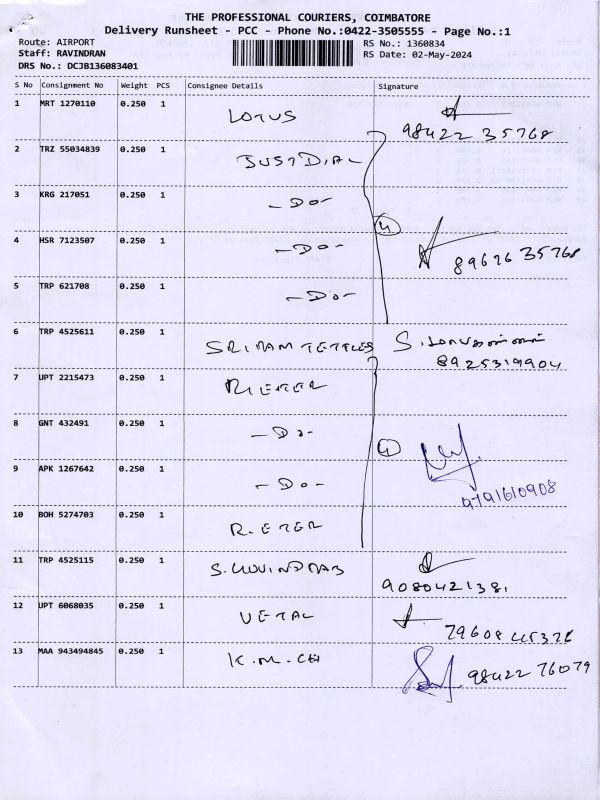 THE PROFESSIONAL COURIERS, COIMBATORE
Delivery Runsheet - PCC - Phone No.:0422-3505555 - Page No.:1
Route: AIRPORT RS No.: 1360834
Staff: RAVINDRAN RS Date: 02-May-2024
DRS No.: DCJB136083401
S No Consignment No Weight PCS Consignee Details Signature
1 MRT 1270110 0.250 1 LOTUS
98422 35768
2 TRZ 55034839 0.250 1 JUSTDIAL
3 KRG 217051 0.250 1 -DO-
4
4 HSR 7123507 0.250 1 -DO- 89626 35768
5 TRP 621708 0.250 1 -DO-
6 TRP 4525611 0.250 1 SRIRAM S.
8925319904
7 UPT 2215473 0.250 1 RIETER
8 GNT 432491 0.250 1 -DO-
4
9 APK 1267642 0.250 1 -DO- 9791610908
10 BOH 5274703 0.250 1 RIETER
11 TRP 4525115 0.250 1 S.
9080421381
12 UPT 6068035 0.250 1
13 MAA 943494845 0.250 1 K.M.CH 98422 76079